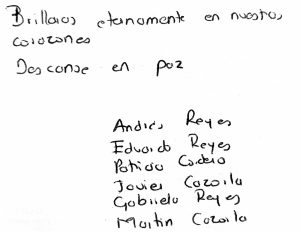 Brillaras eternamente en nuestros
corazones
Descanse en paz
Andrés Reyes
Eduardo Reyes
Patricia Cordero
Javier Cazorla
Gabriela Reyes
Martin Cazorla